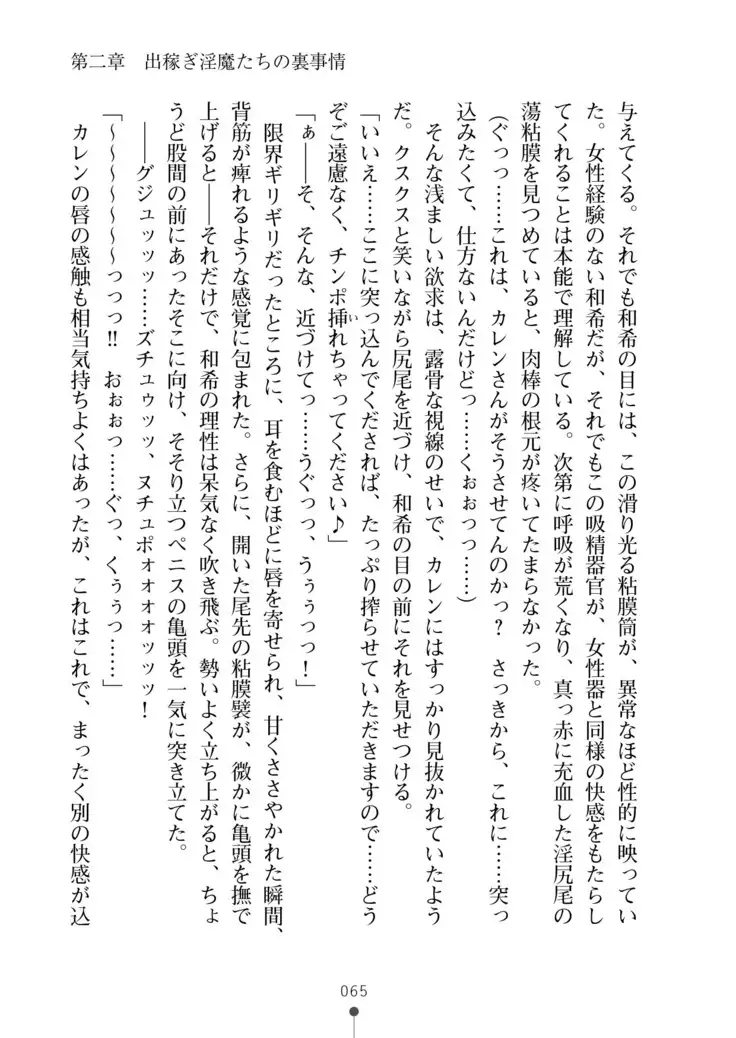 第二章　出稼ぎ淫魔たちの裏事情
与えてくる。それでも和希の目には、この滑り光る粘膜筒が、異常なほど性的に映ってい
た。女性経験のない和希だが、それでもこの吸精器官が、女性器と同様の快感をもたらし
てくれることは本能で理解している。次第に呼吸が荒くなり、真っ赤に充血した淫尻尾の
蕩粘膜を見つめていると、肉棒の根元が疼いてたまらなかった。
（ぐっっ……これは、カレンさんがそうさせてんのかっ？　さっきから、これに……突っ
込みたくて、仕方ないんだけどっ……くぉぉっっ……）
そんな浅ましい欲求は、露骨な視線のせいで、カレンにはすっかり見抜かれていたよう
だ。クスクスと笑いながら尻尾を近づけ、和希の目の前にそれを見せつける。
「いいえ……ここに突っ込んでくだされば、たっぷり搾らせていただきますので……どう
ぞご遠慮なく、チンポ挿れちゃってください♪」
い
「ぁ――そ、そんな、近づけてっ……うぐっっ、うぅぅっっ！」
限界ギリギリだったところに、耳を食むほどに唇を寄せられ、甘くささやかれた瞬間、
背筋が痺れるような感覚に包まれた。さらに、開いた尾先の粘膜襞が、微かに亀頭を撫で
上げると――それだけで、和希の理性は呆気なく吹き飛ぶ。勢いよく立ち上がると、ちょ
うど股間の前にあったそこに向け、そそり立つペニスの亀頭を一気に突き立てた。
――グジュッッッ……ズチュゥッッッ、ヌチュポォォォォォッッッ！
「～～～～～～～っっっ!!　おぉぉっ……ぐっ、くぅぅっ……」
カレンの唇の感触も相当気持ちよくはあったが、これはこれで、まったく別の快感が込
065